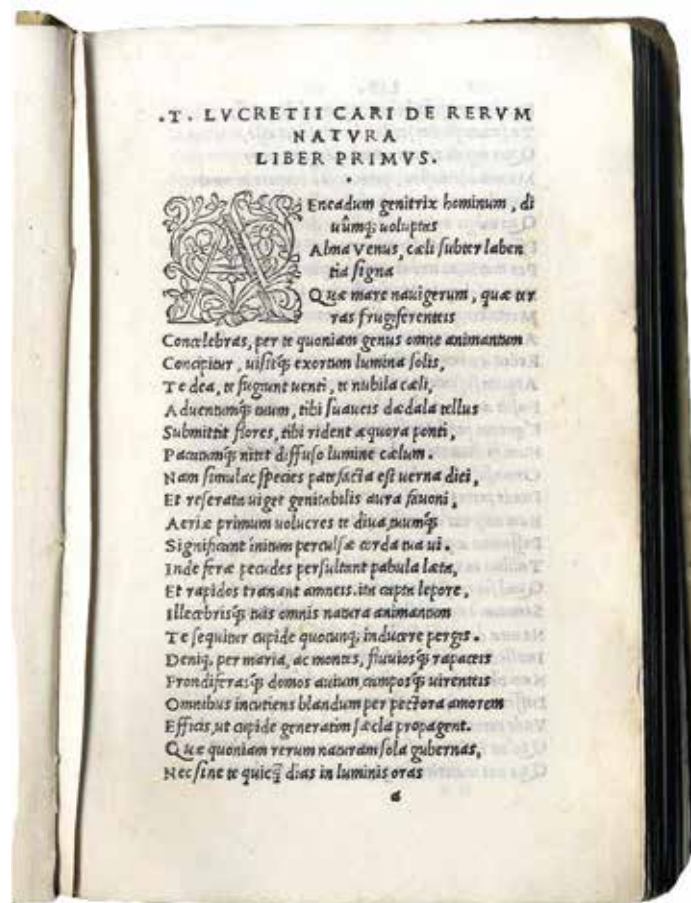 .T. LVCRETII CARI DE RERVM
NATVRA
LIBER PRIMVS.
AEneadum genitrix hominum, di
uûmq; uoluptas
Alma Venus, cæli subter laben
tia signa
Quæ mare nauigerum, quæ ter
ras frugiferenteis
Concelebras, per te quoniam genus omne animantum
Concipitur, uisitq; exortum lumina solis,
Te dea, te fugiunt uenti, te nubila cæli,
Aduentumq; tuum, tibi suaueis dædala tellus
Submittit flores, tibi rident æquora ponti,
Pacatumq; nitet diffuso lumine cælum.
Nam simulac species patefacta est uerna diei,
Et reserata uiget genitabilis aura fauoni,
Aeriæ primum uolucres te diua, tuumq;
Significant initum perculsæ corda tua ui.
Inde feræ pecudes persultant pabula læta,
Et rapidos tranant amneis. ita capta lepore,
Illecebrisq; tuis omnis natura animantum
Te sequitur cupide quocunq; inducere pergis.
Deniq; per maria, ac montes, fluuiosq; rapaceis
Frondiferasq; domos auium, camposq; uirenteis
Omnibus incutiens blandum per pectora amorem
Efficis, ut cupide generatim sæcla propagent.
Quæ quoniam rerum naturam sola gubernas,
Nec sine te quicq̃ dias in luminis oras
a